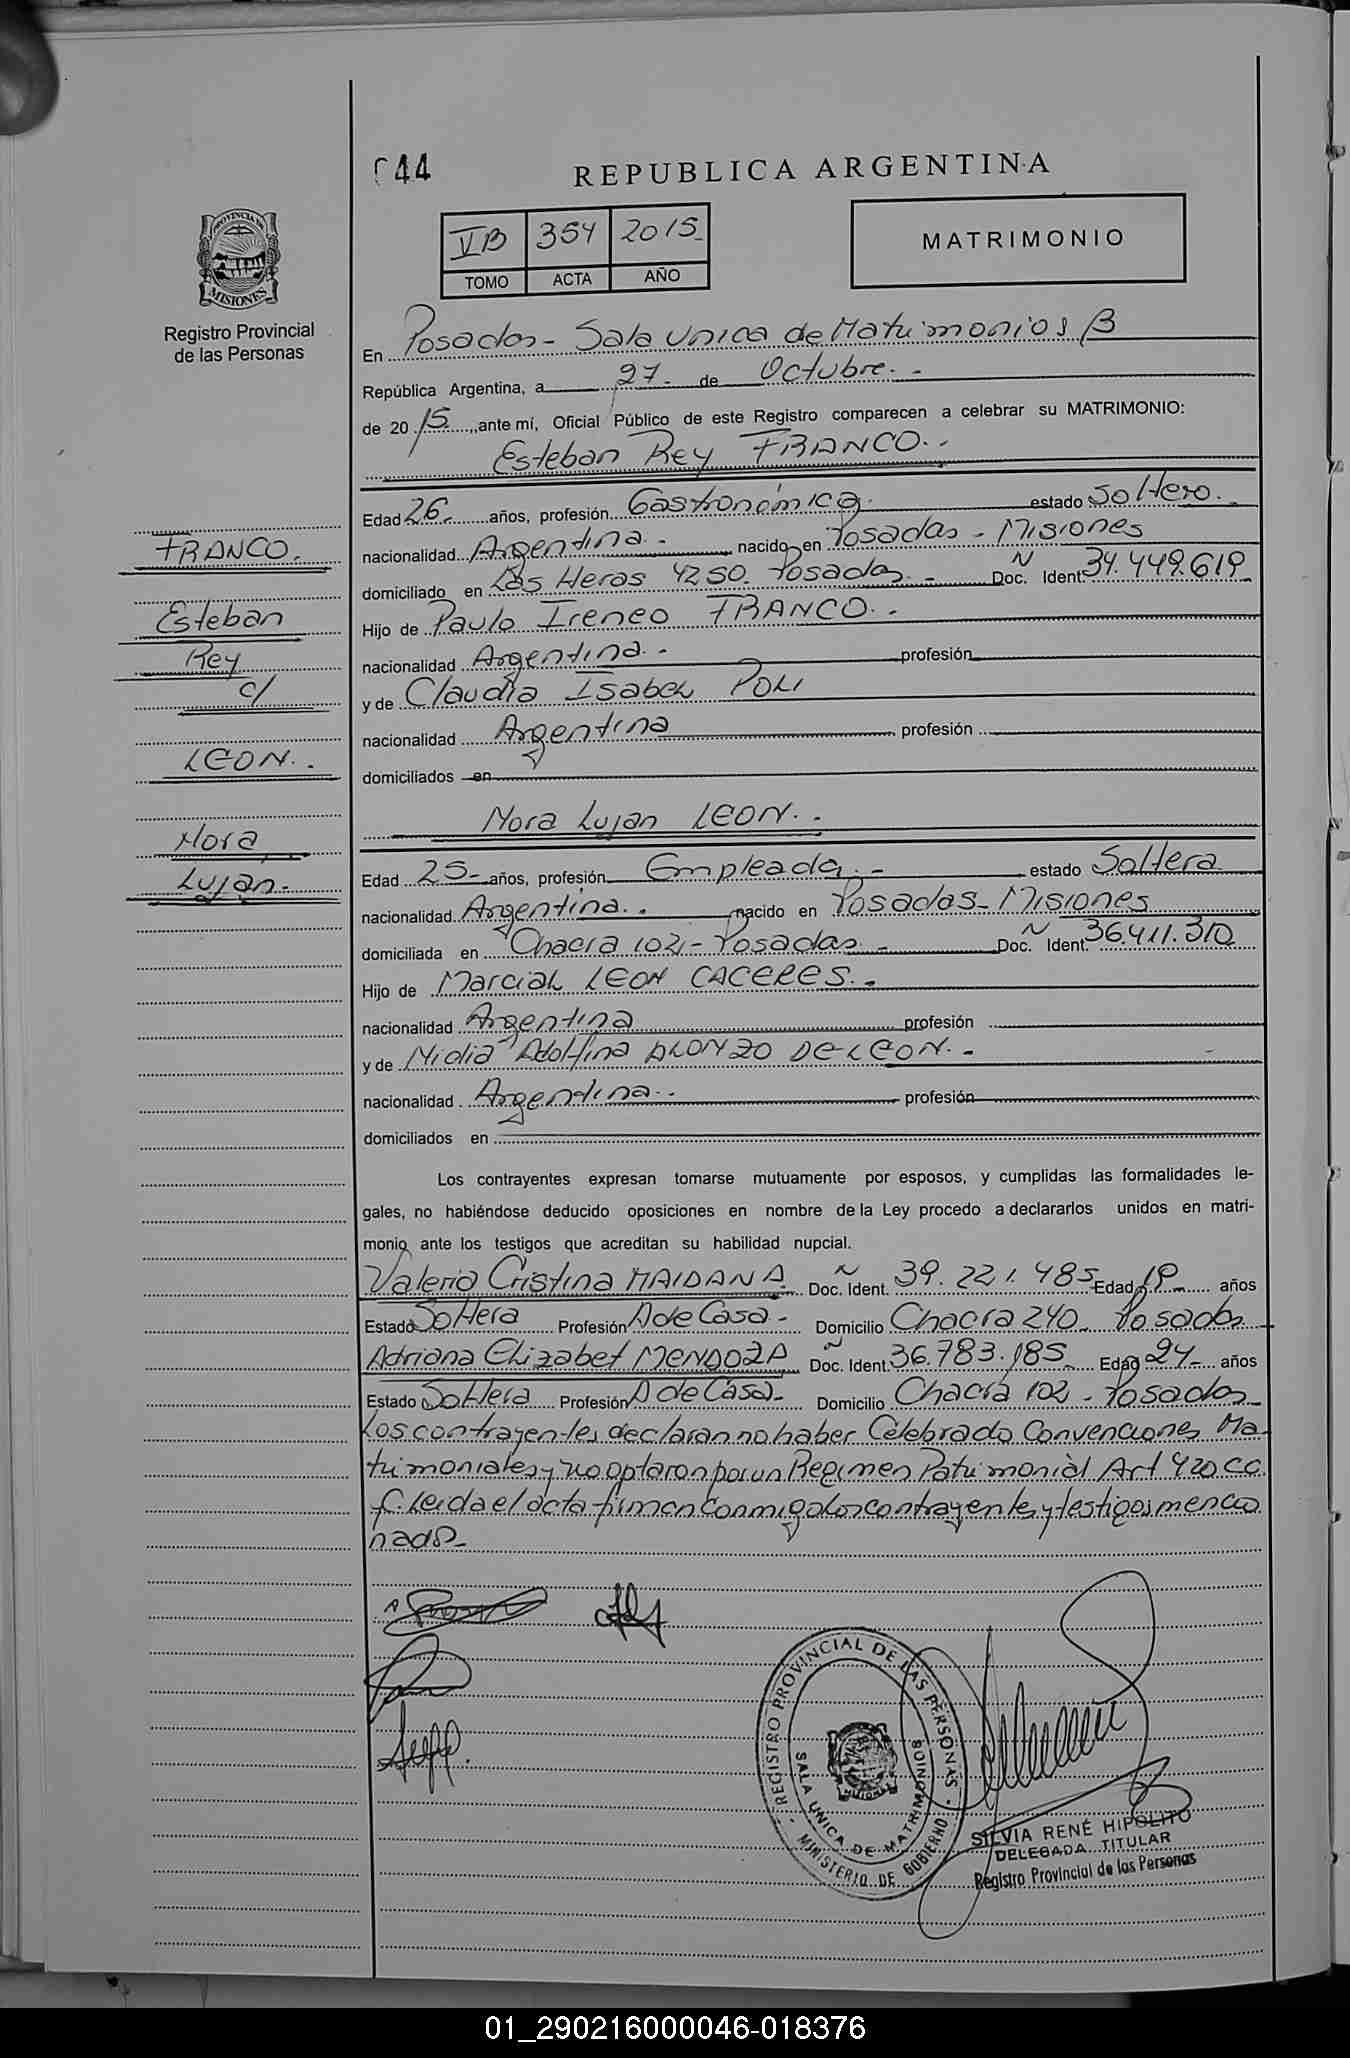 044
REPUBLICA ARGENTINA
PROVINCIA DE
MISIONES
Registro Provincial
de las Personas
VB 354 2015
TOMO ACTA AÑO
MATRIMONIO
En Posadas - Sala Unica de Matrimonios B
República Argentina, a 27 de Octubre.-
de 2015, ante mí, Oficial Público de este Registro comparecen a celebrar su MATRIMONIO:
Esteban Rey FRANCO.-
Edad 26.- años, profesión Gastronómica estado Soltero.-
nacionalidad Argentina.- nacido en Posadas - Misiones
domiciliado en Las Heras 4250. Posadas.- Doc. Ident. N 34.449.619
Hijo de Paulo Ireneo FRANCO.-
nacionalidad Argentina.- profesión
y de Claudia Isabel POLI
nacionalidad Argentina profesión
domiciliados en
Nora Lujan LEON.-
Edad 25- años, profesión Empleada.- estado Soltera
nacionalidad Argentina.- nacido en Posadas - Misiones
domiciliada en Chacra 102,- Posadas.- Doc. Ident. N 36.411.310
Hijo de Marcial LEON CACERES.-
nacionalidad Argentina profesión
y de Nidia Adolfina ALONZO DE LEON.-
nacionalidad Argentina.- profesión
domiciliados en
Los contrayentes expresan tomarse mutuamente por esposos, y cumplidas las formalidades le-
gales, no habiéndose deducido oposiciones en nombre de la Ley procedo a declararlos unidos en matri-
monio ante los testigos que acreditan su habilidad nupcial.
Valeria Cristina MAIDANA Doc. Ident. 39.221.485 Edad 19 años
Estado Soltera Profesión A de Casa- Domicilio Chacra 240- Posadas
Adriana Elizabet MENDOZA Doc. Ident. 36.783.185 Edad 24- años
Estado Soltera Profesión A de Casa- Domicilio Chacra 102 - Posadas
Los contrayentes declaran no haber Celebrado Convenciones Ma-
trimoniales y no optaron por un Regimen Patrimonial Art 420 CC.
f. Leida el acta firman Conmigo los contrayentes y testigos mencio
nados-
FRANCO.
Esteban
Rey
c/
LEON.-
Nora
Lujan.-
REGISTRO PROVINCIAL DE LAS PERSONAS
SALA UNICA DE MATRIMONIOS
MINISTERIO DE GOBIERNO
SILVIA RENÉ HIPOLITO
DELEGADA TITULAR
Registro Provincial de las Personas
01_290216000046-018376